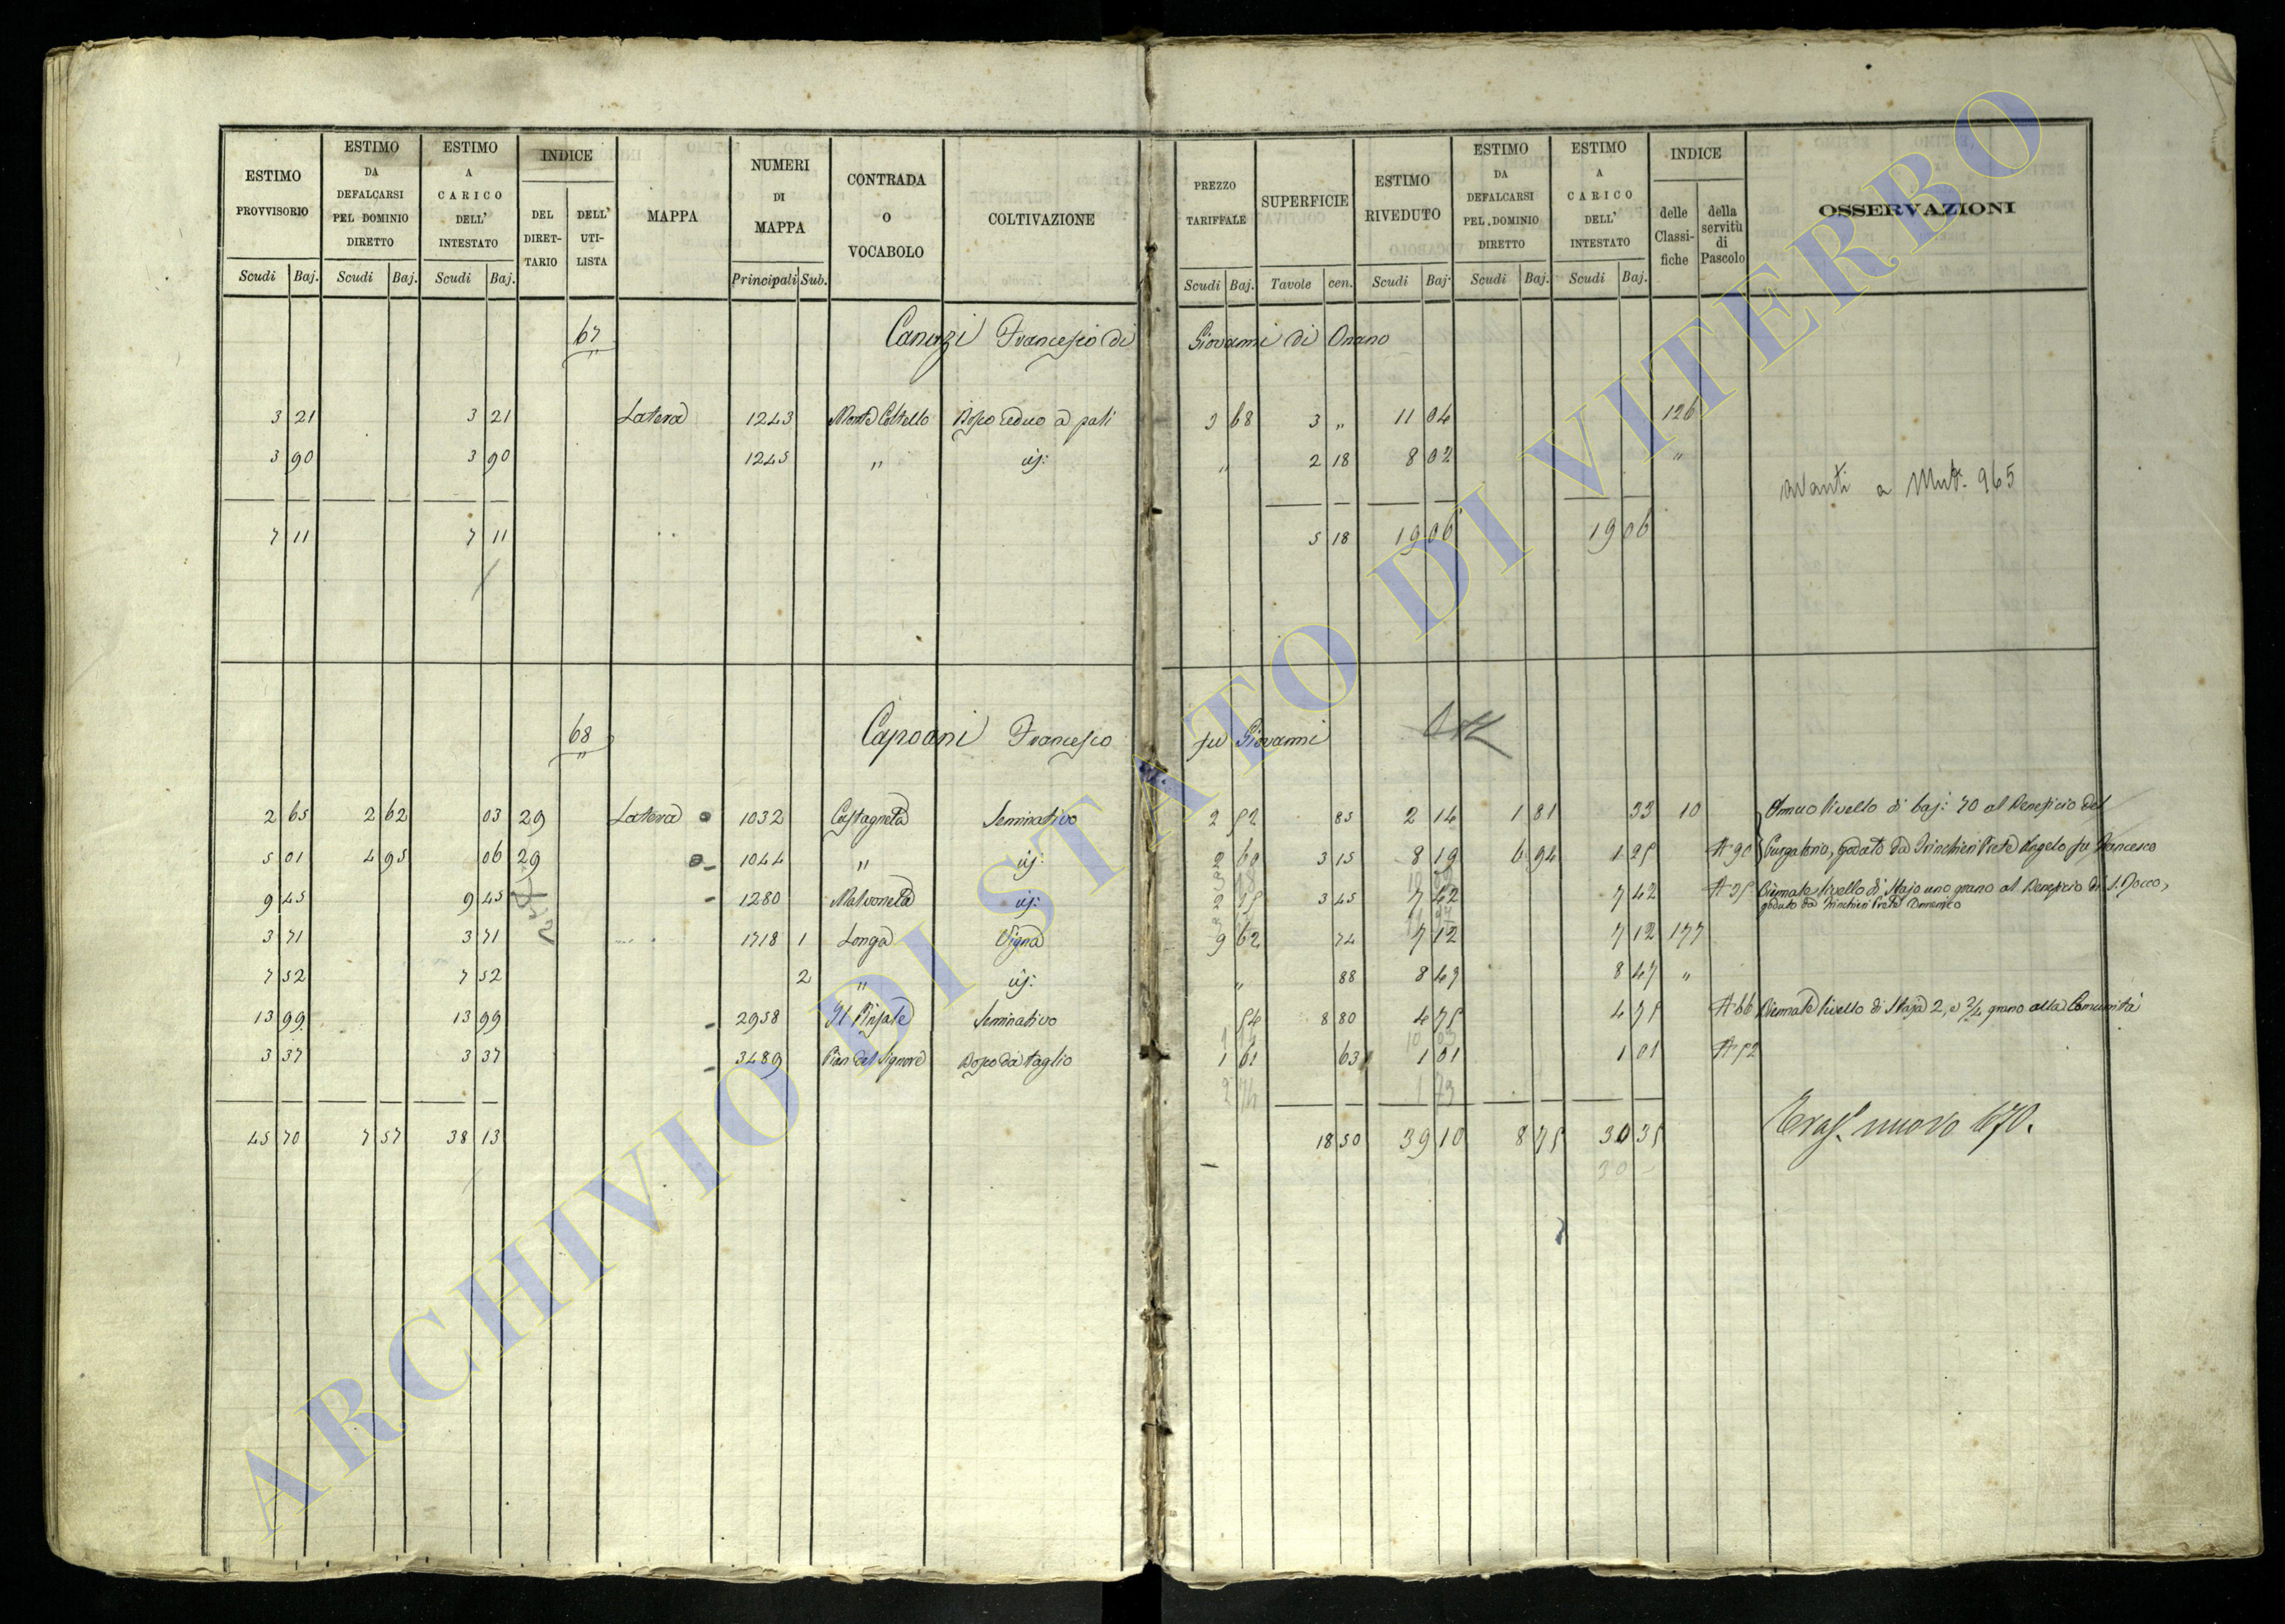 ESTIMO PROVVISORIO Scudi Baj.
ESTIMO DA DEFALCARSI PEL DOMINIO DIRETTO Scudi Baj.
ESTIMO A CARICO DELL' INTESTATO Scudi Baj.
INDICE DEL DIRET- TARIO DELL' UTI- LISTA
MAPPA
NUMERI DI MAPPA Principali Sub.
CONTRADA O VOCABOLO
COLTIVAZIONE
PREZZO TARIFFALE Scudi Baj.
SUPERFICIE Tavole cen.
ESTIMO RIVEDUTO Scudi Baj.
ESTIMO DA DEFALCARSI PEL DOMINIO DIRETTO Scudi Baj.
ESTIMO A CARICO DELL' INTESTATO Scudi Baj.
INDICE delle Classi- fiche della servitù di Pascolo
OSSERVAZIONI
67 Canuzi Francesco di Giovanni di Onano
3 21 3 21 Latera 1243 Monte Coltello Bosco ceduo a pali 3 68 3 " 11 04 126
3 90 3 90 1245 " id: " 2 18 8 02 "
avanti a Mut. 965
7 11 7 11 5 18 19 06 19 06
68 Capoani Francesco fu Giovanni
2 65 2 62 03 29 Latera 1032 Castagneta Seminativo 2 52 85 2 14 1 81 33 10 Annuo livello di baj: 70 al Beneficio del
5 01 4 95 06 29 1044 " id: 2 60 3 15 8 19 6 94 1 25 Purgatorio, goduto da Trinchieri Prete Angelo fu Francesco
9 45 9 45 1280 Malvoneta id: 3 45 7 42 7 42 Biennale livello di Stajo uno grano al Beneficio di S. Rocco,
goduto da Trinchieri Prete Domenico
3 71 3 71 1718 1 Longa Vigna 9 62 74 7 12 7 12 177
7 52 7 52 2 " id: " 88 8 47 8 47 "
13 99 13 99 2958 Il Pinsale Seminativo 54 8 80 4 75 4 75 A 66 Biennale livello di Staja 2, e 2/4 grano alla Comunità
3 37 3 37 3489 Pian del Signore Bosco da taglio 1 61 63 1 01 1 01 A 52
45 70 7 57 38 13 18 50 39 10 8 75 30 35
Trasp. nuovo 670.
ARCHIVIO DI STATO DI VITERBO